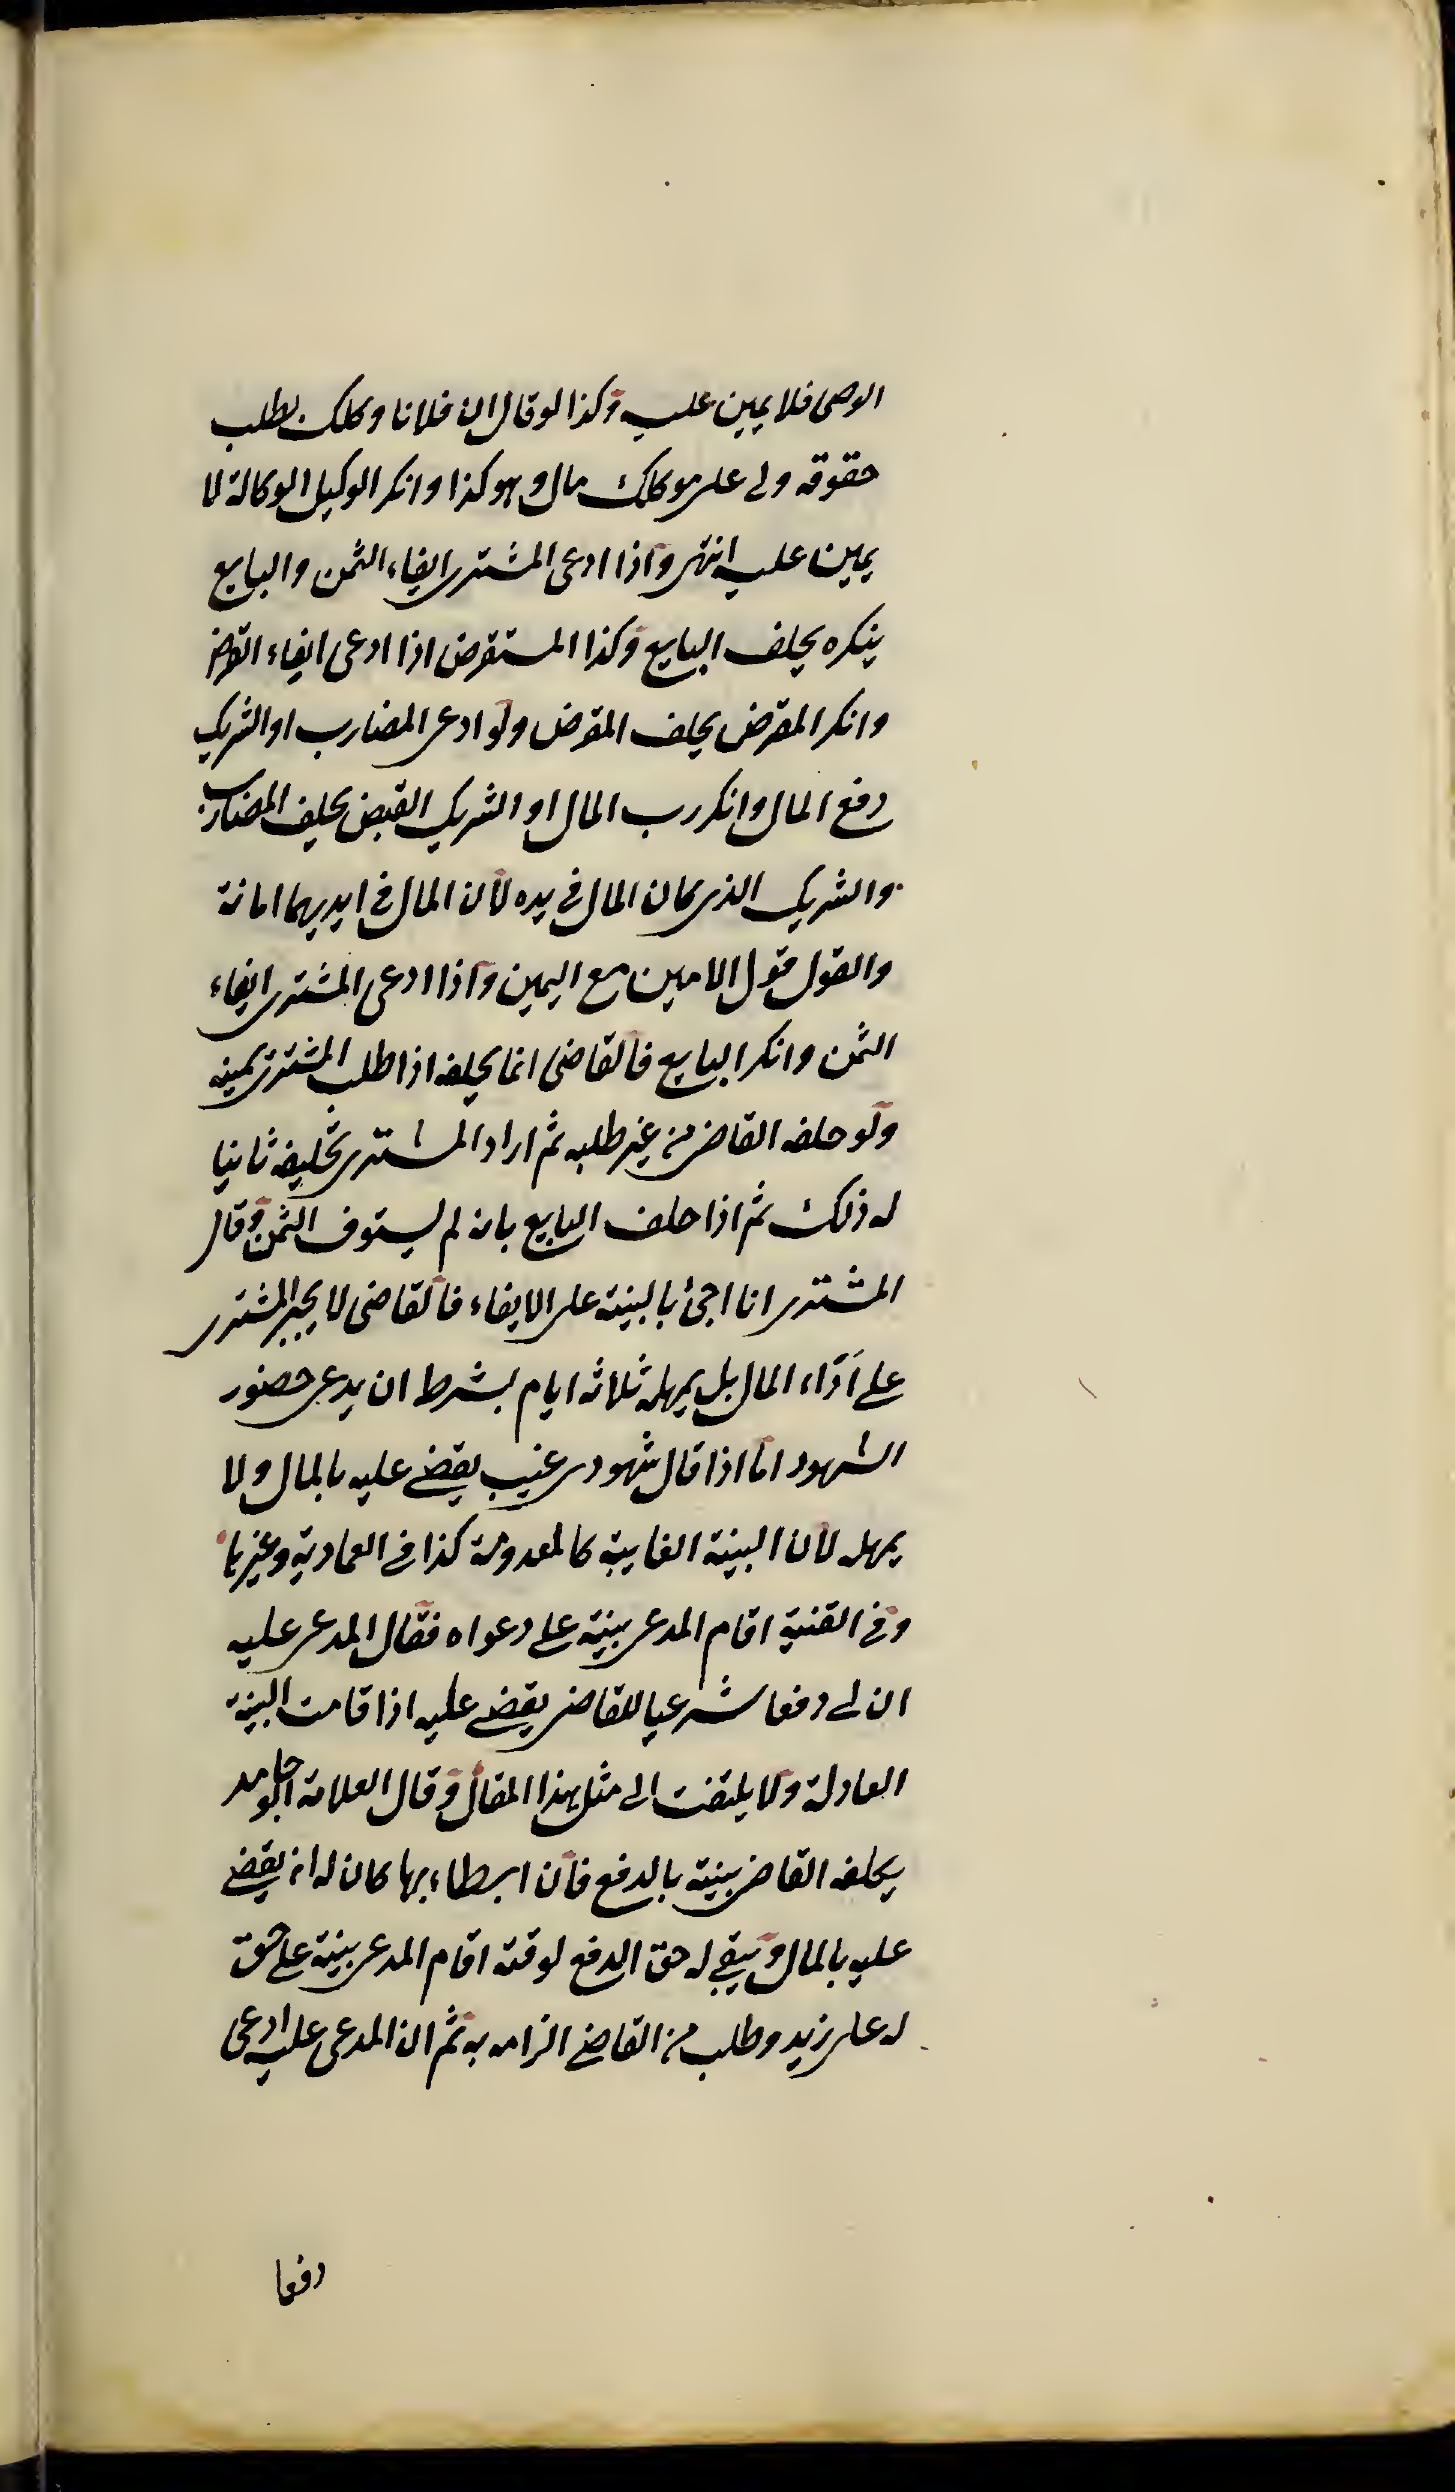 الوصى فلا يمين عليه وكذا لو قال ان فلانا وكلك بطلب
حقوقه ولى على موكلك مال وهو كذا وانكر الوكيل الوكالة لا
يمين عليه انتهى واذا ادعى المشترى ايفاء الثمن والبايع
ينكره يحلف البايع وكذا المستقرض اذا ادعى ايفاء القرض
وانكر المقرض يحلف المقرض ولو ادعى المضارب او الشريك
دفع المال وانكر رب المال او الشريك القبض يحلف المضارب
والشريك الذى كان المال فى يده لان المال فى ايديهما امانة
والقول قول الامين مع اليمين واذا ادعى المشترى ايفاء
الثمن وانكر البايع فالقاضى انما يحلفه اذا طلب المشترى يمينه
ولو حلفه القاضى من غير طلبه ثم اراد المشترى تحليفه ثانيا
له ذلك ثم اذا حلف البايع بانه لم يستوف الثمن وقال
المشترى انا اجئ بالبينة على الايفاء فالقاضى لا يجبر المشترى
على اداء المال بل يمهله ثلاثة ايام بشرط ان يدعى حضور
الشهود اما اذا قال شهودى غيب يقضى عليه بالمال ولا
يمهله لان البينة الغايبة كالمعدومة كذا فى العمادية وغيرها
وفى القنية اقام المدعى بينة على دعواه فقال المدعى عليه
ان لى دفعا شرعيا للقاضى يقضى عليه اذا قامت البينة
العادلة ولا يلتفت الى مثل هذا المقال وقال العلامة ابو حامد
يكلفه القاضى بينة بالدفع فان ابطاء بها كان له ان يقضى
عليه بالمال ويبقى له حق الدفع لوقته اقام المدعى بينة على حق
له على زيد وطلب من القاضى الزامه به ثم ان المدعى عليه ادعى
دفعا